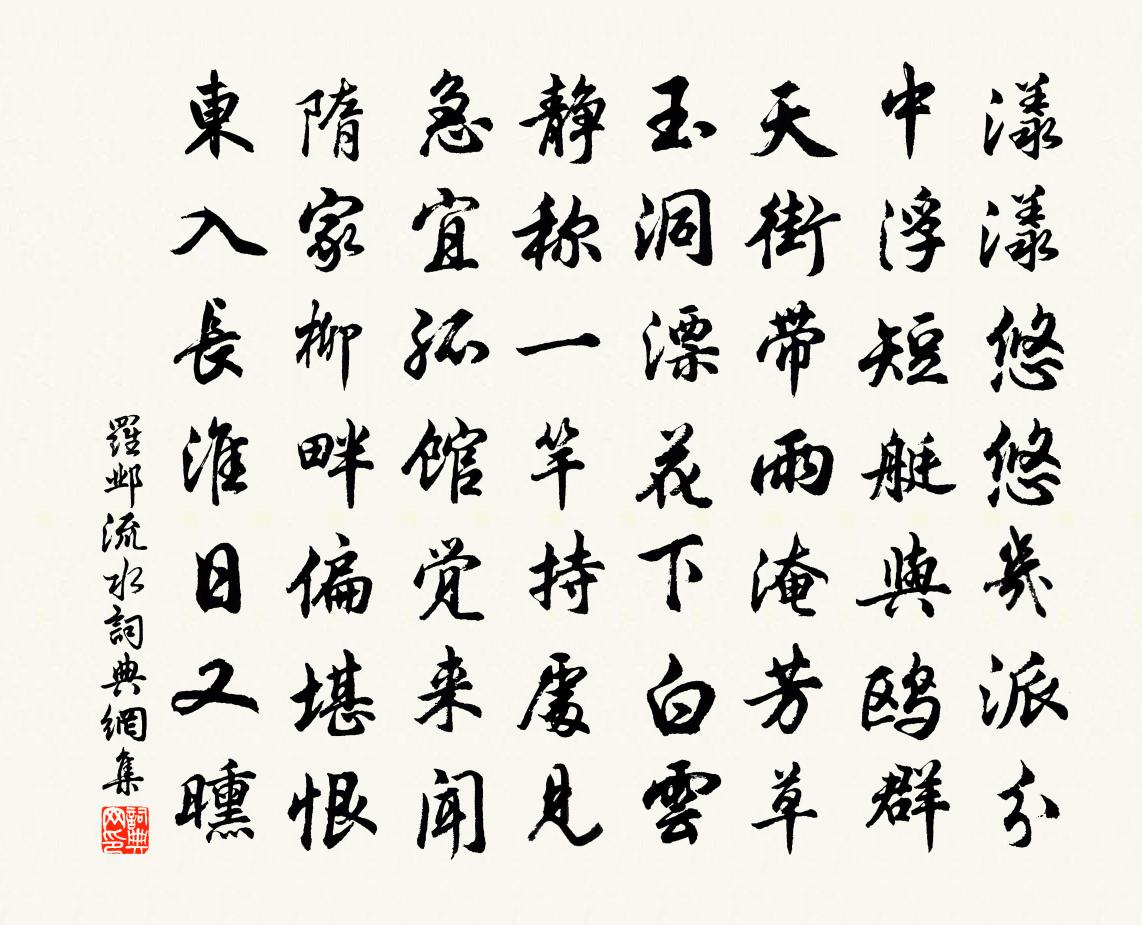 漾漾悠悠幾派分
中浮短艇與鸥群
天街带雨淹芳草
玉洞漂花下白雲
静称一竿持處見
急宜孤馆觉来闻
隋家柳畔偏堪恨
東入長淮日又曛
羅邺流水詞典網集
詞典网印